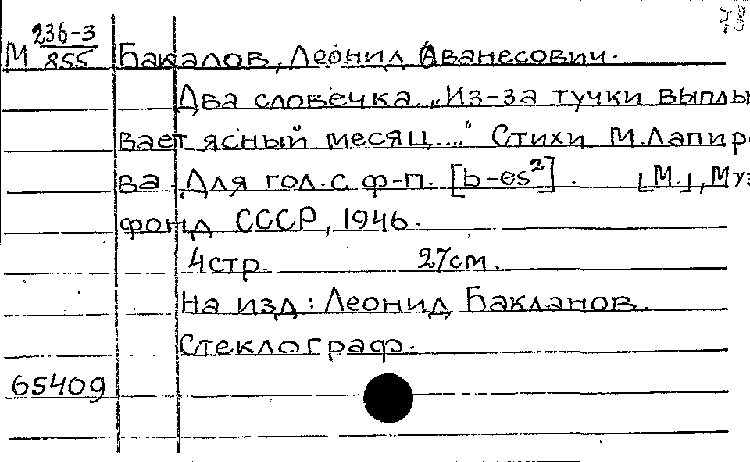 М 236-3
855 Бакалов, Леонид Аванесович.
Два словечка „Из-за тучки выплы
вает ясный месяц...." Стихи М.Лапиро
ва Для гол. с ф-п. [b-es²]. [М.], Муз
фонд СССР, 1946.
4стр. 27см.
На изд: Леонид Бакланов.
Стеклограф.
65409